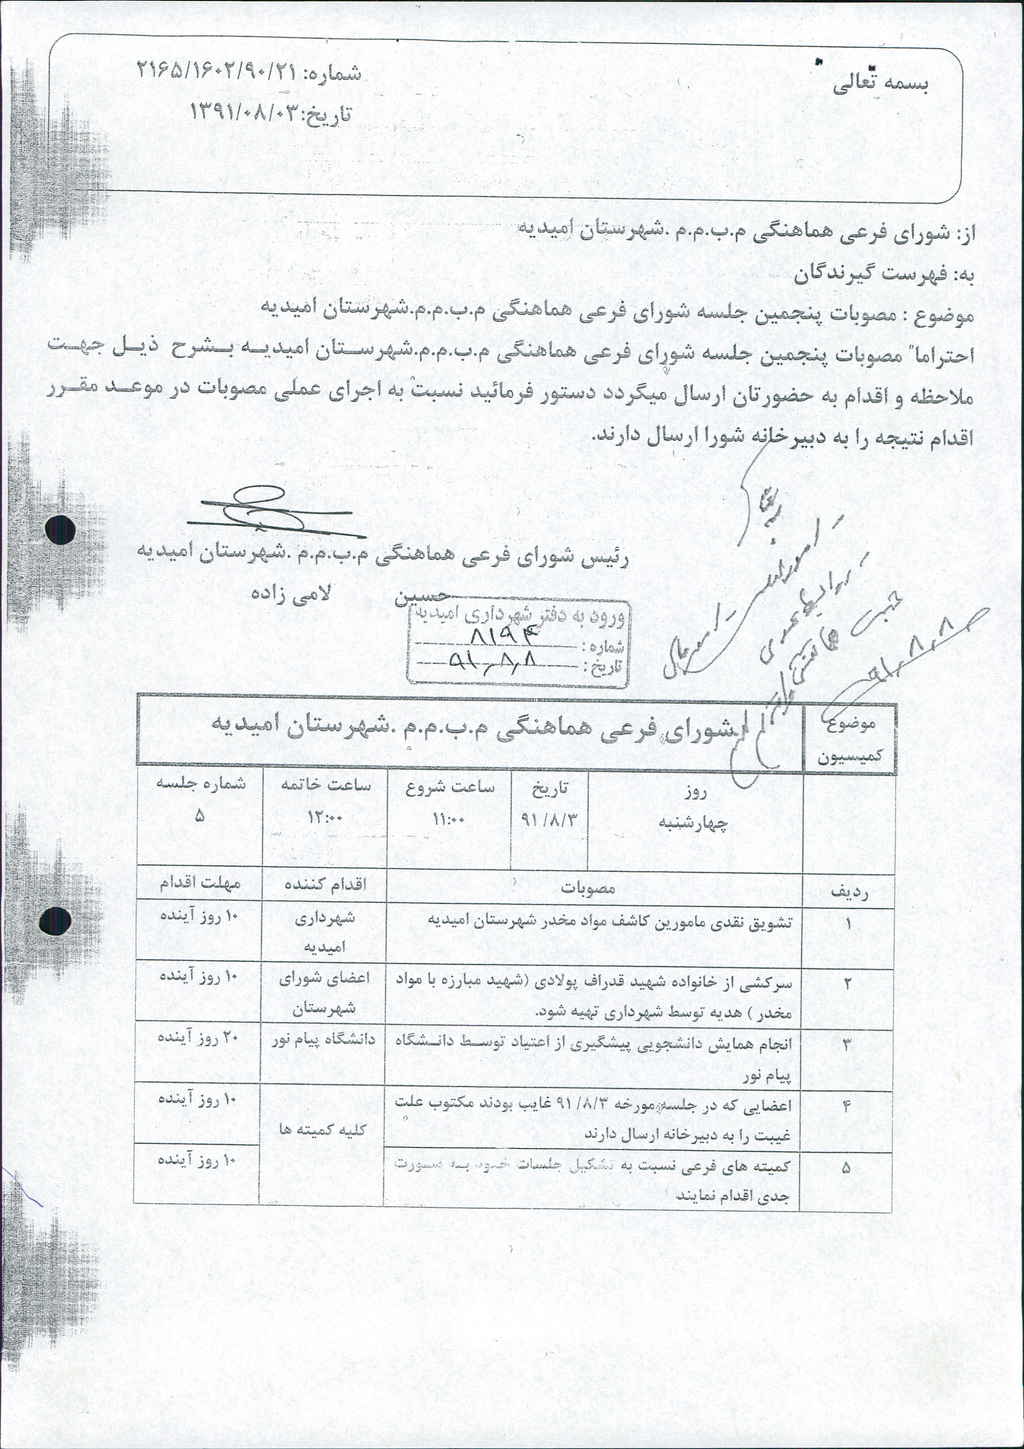 بسمه تعالی
شماره: ۲۱۶۵/۱۶۰۲/۹۰/۲۱
تاریخ: ۱۳۹۱/۰۸/۰۳
از: شورای فرعی هماهنگی م.ب.م.م .شهرستان امیدیه
به: فهرست گیرندگان
موضوع : مصوبات پنجمین جلسه شورای فرعی هماهنگی م.ب.م.م.شهرستان امیدیه
احتراما" مصوبات پنجمین جلسه شورای فرعی هماهنگی م.ب.م.م.شهرستان امیدیه بشرح ذیل جهت
ملاحظه و اقدام به حضورتان ارسال میگردد دستور فرمائید نسبت به اجرای عملی مصوبات در موعد مقرر
اقدام نتیجه را به دبیرخانه شورا ارسال دارند.
رئیس شورای فرعی هماهنگی م.ب.م.م .شهرستان امیدیه
حسین لامی زاده
ورود به دفتر شهرداری امیدیه
شماره : ۸۱۹۴
تاریخ : ۹۱,۸,۸
۹۱,۸,۸
موضوع کمیسیون
شورای فرعی هماهنگی م.ب.م.م .شهرستان امیدیه
روز تاریخ ساعت شروع ساعت خاتمه شماره جلسه
چهارشنبه ۹۱/۸/۳ ۱۱:۰۰ ۱۲:۰۰ ۵
ردیف مصوبات اقدام کننده مهلت اقدام
۱ تشویق نقدی مامورین کاشف مواد مخدر شهرستان امیدیه شهرداری ۱۰ روز آینده
امیدیه
۲ سرکشی از خانواده شهید قدراف پولادی (شهید مبارزه با مواد اعضای شورای ۱۰ روز آینده
مخدر ) هدیه توسط شهرداری تهیه شود. شهرستان
۳ انجام همایش دانشجویی پیشگیری از اعتیاد توسط دانشگاه دانشگاه پیام نور ۲۰ روز آینده
پیام نور
۴ اعضایی که در جلسه مورخه ۹۱/۸/۳ غایب بودند مکتوب علت ۱۰ روز آینده
غیبت را به دبیرخانه ارسال دارند کلیه کمیته ها
۵ کمیته های فرعی نسبت به تشکیل جلسات خود به صورت ۱۰ روز آینده
جدی اقدام نمایند